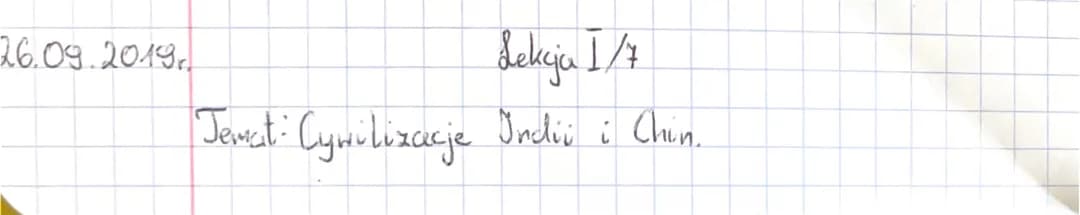 26.09.2019r. Lekcja I/7
Temat: Cywilizacje Indii i Chin.